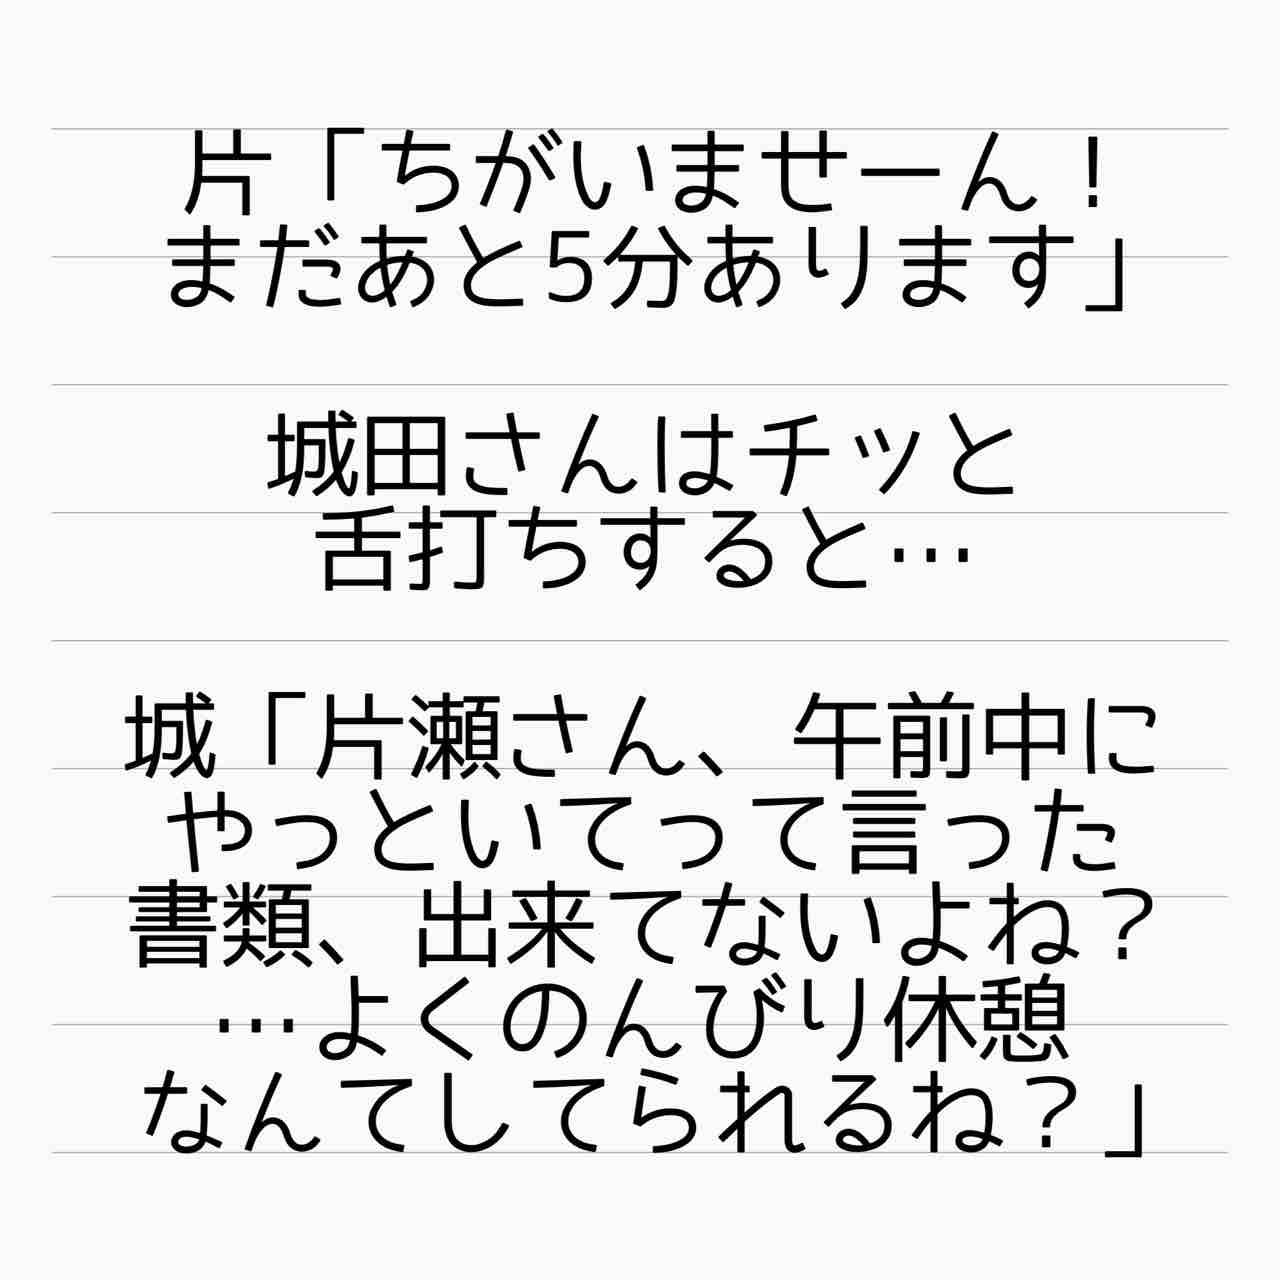 片「ちがいませーん！
まだあと5分あります」
城田さんはチッと
舌打ちすると…
城「片瀬さん、午前中に
やっといてって言った
書類、出来てないよね？
…よくのんびり休憩
なんてしてられるね？」